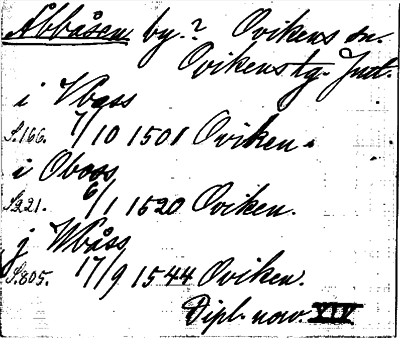 Åbbåsen by.? Ovikens sn.
Ovikens tg. Jmt.
i Vbass
S.166. 7/10 1501 Oviken.
i Oboss
S.221. 6/1 1520 Oviken.
j Wbåss
S.805. 17/9 1544 Oviken.
Dipl. nov. XIV